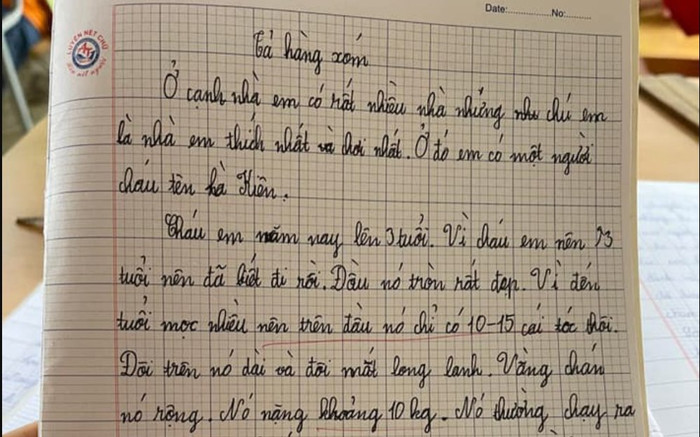 Date: No:
LUYỆN NÉT CHỮ
Tả hàng xóm
Ở cạnh nhà em có rất nhiều nhà nhưng nhà chú em
là nhà em thích nhất và chơi nhất. Ở đó em có một người
cháu tên hà Hiên.
Cháu em năm nay lên 3 tuổi. Vì cháu em nên 3
tuổi nên đã biết đi rồi. Đầu nó tròn rất đẹp. Vì đến
tuổi mọc nhiều nên trên đầu nó chỉ có 10-15 cái tóc thôi.
Đôi trên nó dài và đôi mắt long lanh. Vầng chán
nó rộng. Nó nặng khoảng 10 kg. Nó thường chạy ra